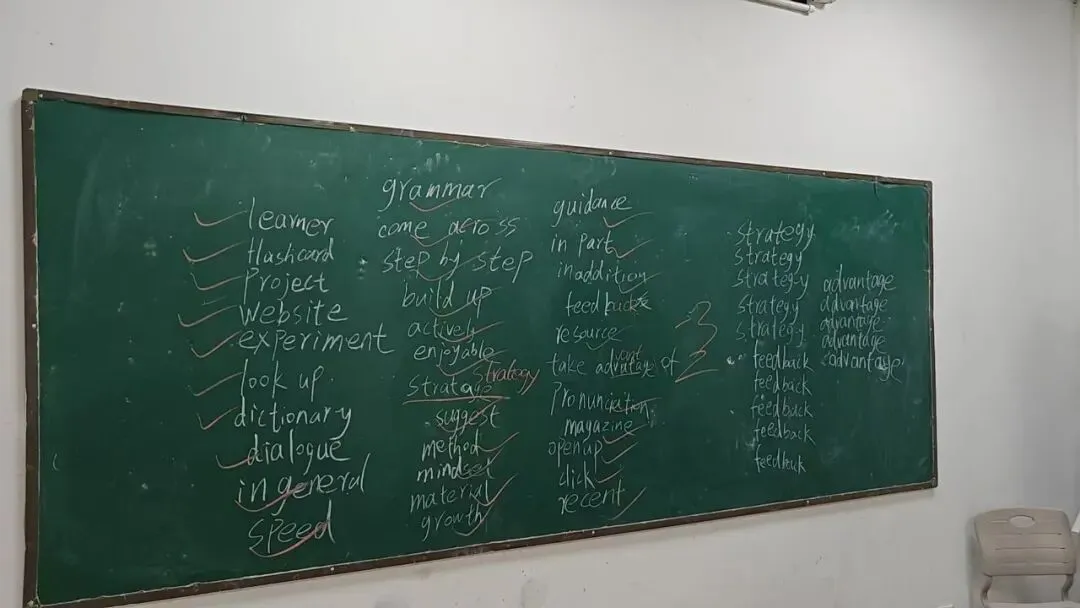 learner
flashcard
project
website
experiment
look up
dictionary
dialogue
in general
speed
grammar
come across
step by step
build up
actively
enjoyable
stratage strategy
suggest
method
mindset
material
growth
guidance
in part
inaddition
feedback
resource
take advantage of
pronunciation
magazine
open up
click
recent
-3
strategy
strategy
strategy
strategy
strategy
feedback
feedback
feedback
feedback
feedback
advantage
advantage
advantage
advantage
advantage